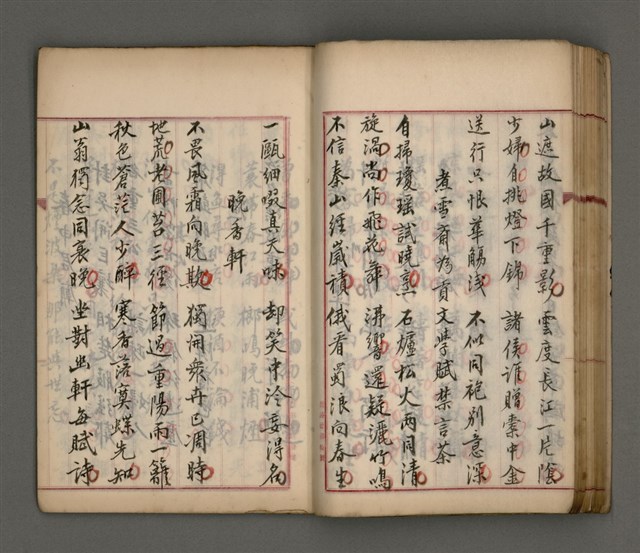 山遮故國千重影 雲度長江一片陰
少婦自挑燈下錦 諸侯誰贈橐中金
送行只恨華觴淺 不似同袍別意深
煮雪齋為貢文學賦禁言茶
自掃瓊瑤試曉烹 石爐松火兩同清
旋渦尚作飛花舞 沸響還疑灑竹鳴
不信秦山經歲積 俄看蜀浪向春生
一甌細啜真天味 却笑中泠妄得名
晚香軒
不畏風霜向晚欺 獨開衆卉已凋時
地荒老圃苔三徑 節過重陽雨一籬
秋色蒼茫人少醉 寒香落寞蝶先知
山翁獨念同衰晚 坐對幽軒每賦詩